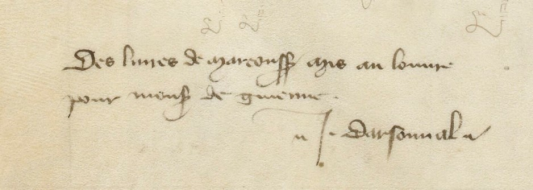 Des livres de marcoussy mis au louvre
pour mons de guienne .
J . darsonual